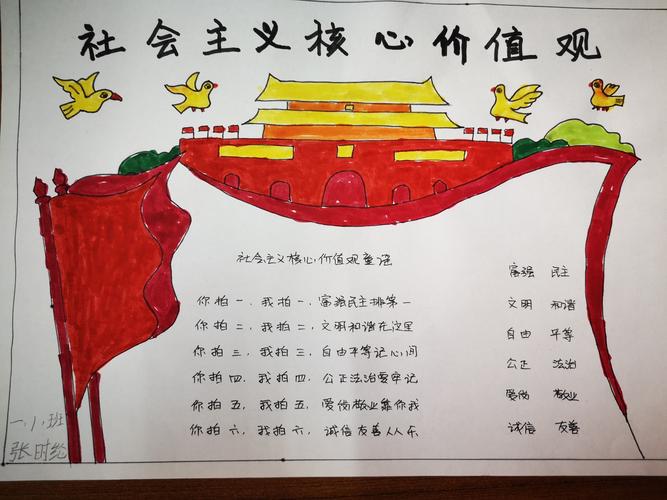 社会主义核心价值观
社会主义核心价值观童谣
你拍一,我拍一,富强民主排第一
你拍二,我拍二,文明和谐在这里
你拍三,我拍三,自由平等记心间
你拍四,我拍四,公正法治要牢记
你拍五,我拍五,爱国敬业靠你我
你拍六,我拍六,诚信友善人人乐
富强 民主
文明 和谐
自由 平等
公正 法治
爱国 敬业
诚信 友善
张时